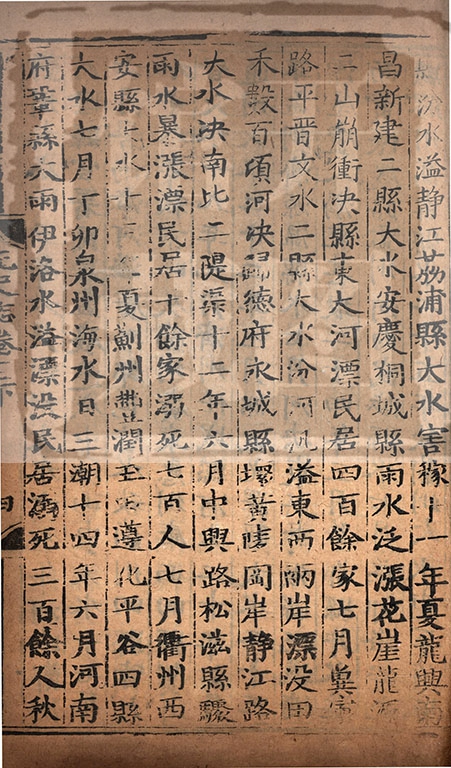 汾水溢靜江荔浦縣大水害稼十一年夏龍興南
昌新建二縣大水安慶桐城縣雨水泛漲花崖龍源
二山崩衝决縣東大河漂民居四百餘家七月冀寧
路平晋文水二縣大水汾河汎溢東西兩岸漂没田
禾數百頃河决歸德府永城縣壞黄陵岡岸靜江路
大水决南北二隄渠十二年六月中興路松滋縣驟
雨水暴漲漂民居千餘家溺死七百人七月衢州西
安縣大水十三年夏薊州豐潤玉田遵化平谷四縣
大水七月丁卯泉州海水日三潮十四年六月河南
府鞏縣大雨伊洛水溢漂没民居溺死三百餘人秋
元史志卷三下
四